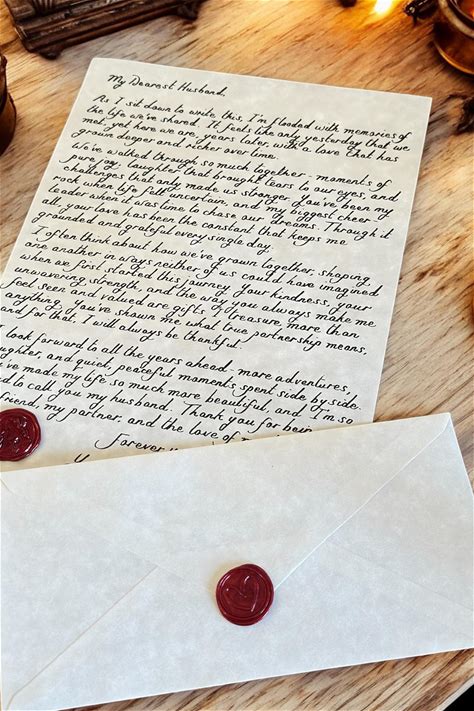 My Dearest Husband,
As I sit down to write this, I'm flooded with memories of
the life we've shared. It feels like only yesterday that we
met, yet here we are, years later, with a love that has
grown deeper and richer over time.
We've walked through so much together - moments of
pure joy, laughter that brought tears to our eyes, and
challenges that only made us stronger. You've been my
rock when life felt uncertain, and my biggest cheer-
leader when it was time to chase our dreams. Through it
all, your love has been the constant that keeps me
grounded and grateful every single day.
I often think about how we've grown together, shaping
one another in ways neither of us could have imagined
when we first started this journey. Your kindness, your
unwavering strength, and the way you always make me
feel seen and valued are gifts I treasure more than
anything. You've shown me what true partnership means,
and for that, I will always be thankful.
look forward to all the years ahead - more adventures,
ughter, and quiet, peaceful moments spent side by side.
ve made my life so much more beautiful, and I'm so
d to call you my husband. Thank you for being
friend, my partner, and the love of
Forever